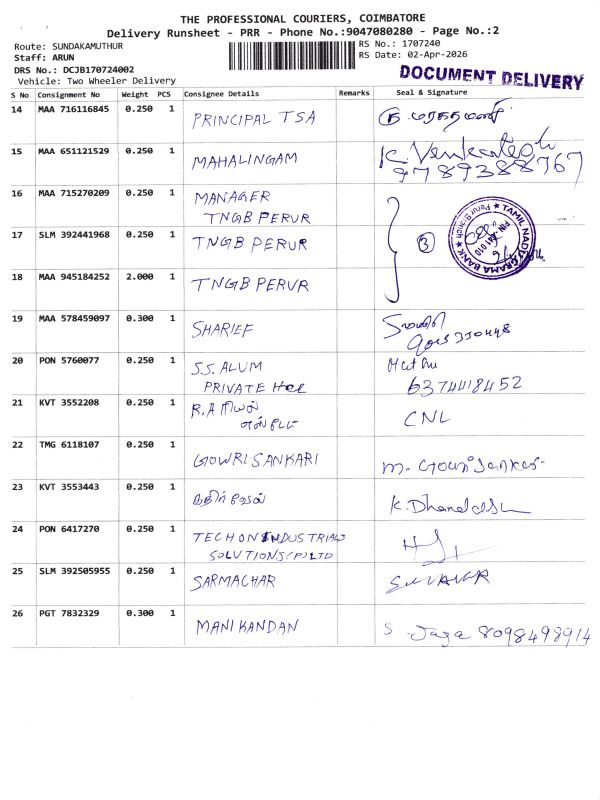 THE PROFESSIONAL COURIERS, COIMBATORE
Delivery Runsheet - PRR - Phone No.:9047080280 - Page No.:2
Route: SUNDAKAMUTHUR
RS No.: 1707240
Staff: ARUN
RS Date: 02-Apr-2026
DRS No.: DCJB170724002
Vehicle: Two Wheeler Delivery
DOCUMENT DELIVERY
S No Consignment No Weight PCS Consignee Details Remarks Seal & Signature
14 MAA 716116845 0.250 1 PRINCIPAL TSA
15 MAA 651121529 0.250 1 MAHALINGAM K. Venkatesh
9789388767
16 MAA 715270209 0.250 1 MANAGER
TNGB PERUR
17 SLM 392441968 0.250 1 TNGB PERUR 3
TAMIL NADU GRAMA BANK
PIN - 641 010
18 MAA 945184252 2.000 1 TNGB PERUR
19 MAA 578459097 0.300 1 SHARIEF
20 PON 5760077 0.250 1 S.S. ALUM
PRIVATE
6374418452
21 KVT 3552208 0.250 1 R.A ரியல்
எஸ்டேட் CNL
22 TMG 6118107 0.250 1 GOWRI SANKARI m. Gowri Sankar
23 KVT 3553443 0.250 1 கதிர்வேல் K. Dhana
24 PON 6417270 0.250 1 TECHON INDUSTRIAL
SOLUTIONS (P) LTD
25 SLM 392505955 0.250 1 SARMACHAR
26 PGT 7832329 0.300 1 MANIKANDAN S Jaga 8098498914